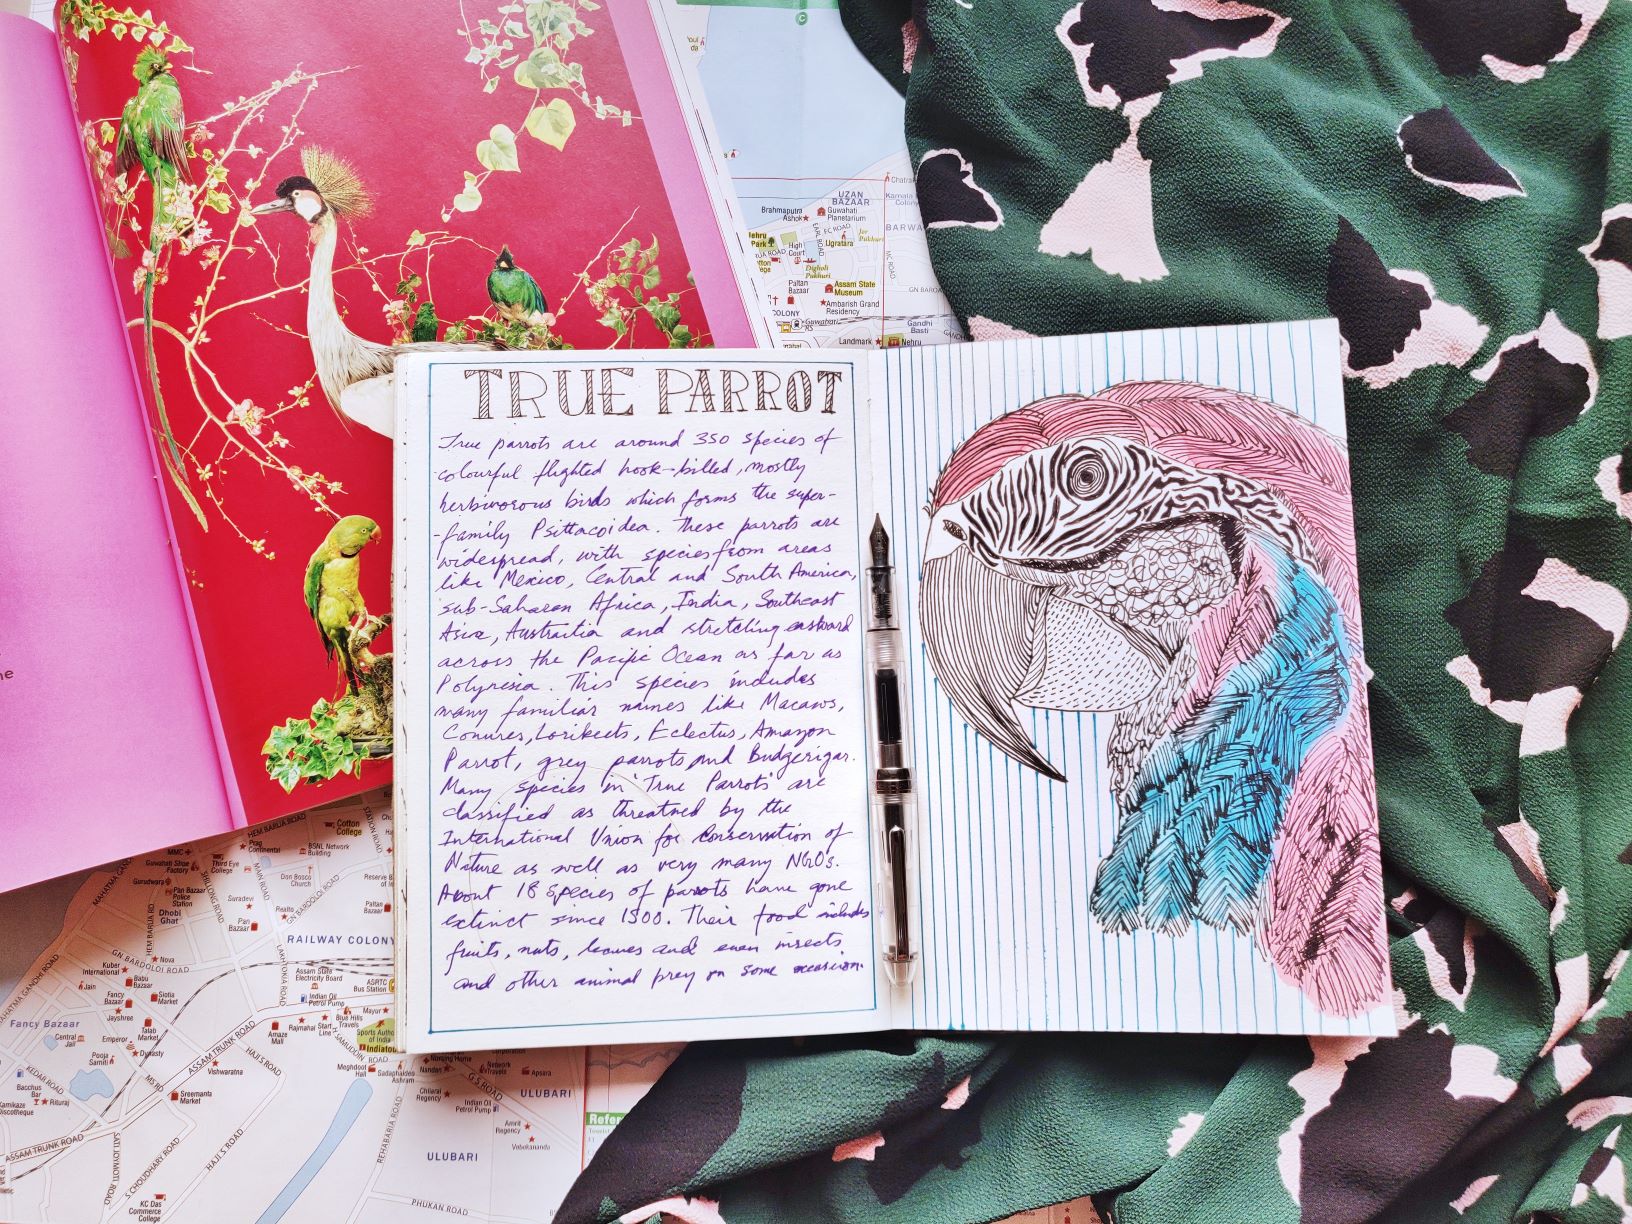 TRUE PARROT
True parrots are around 350 species of
colourful flighted hook-billed, mostly
herbivorous birds which forms the super-
-family Psittacoidea. These parrots are
widespread, with species from areas
like Mexico, Central and South America,
sub-Saharan Africa, India, Southeast
Asia, Australia and stretching eastward
across the Pacific Ocean as far as
Polynesia. This species includes
many familiar names like Macaws,
Conures, Lorikeets, Eclectus, Amazon
Parrot, grey parrots and Budgerigar.
Many species in 'True Parrots' are
classified as threatned by the
International Union for Conservation of
Nature as well as very many NGOs.
About 18 species of parrots have gone
extinct since 1500. Their food includes
fruits, nuts, leaves and even insects
and other animal prey on some occasion.
UZAN
BAZAAR
Brahmaputra
Ashok
Guwahati
Planetarium
Nehru
Park
High
Court
FC ROAD
Ugratara
Jor
Pukhuri
EARL ROAD
Digholi
Pukhuri
MC ROAD
Paltan
Bazaar
Assam State
Museum
COLONY
Ambarish Grand
Residency
GN BARO
Guwahati
Gandhi
Basti
Landmark
Nehru
HEM BARUA ROAD
Cotton
College
STATION ROAD
MMC
Prag
Continental
BSNL Network
Building
Guwahati Shoe
Factory
Third Eye
College
MAHATMA GANDHI ROAD
Gurudwara
Pan Bazaar
Police
Station
SHILLONG ROAD
MAIN ROAD
Don Bosco
Church
Reserve B
Dhobi
Ghat
Suradevi
Realto
GN BORDOLOI ROAD
Paltan
Bazaar
Pan
Bazaar
HEM BARUA RD
RAILWAY COLONY
GN BARDOLOI ROAD
Nova
LAKHTOKIA ROAD
Assam State
Electricity Board
ASRTC
Bus Station
Kuber
International
Babu
Bazaar
Jain
Fancy
Bazaar
Slotia
Market
Indian Oil
Petrol Pump
Jayshree
Mayur
Blue Hills
Travels
Start
Line
Rajmahal
Fancy Bazaar
Talab
Market
Amaze
Mall
Sports Autho
of India
Central
Jail
Emperor
Dynasty
ASSAM TRUNK ROAD
Indiatou
Pooja
Samiti
Vishwaratna
HAJI'S ROAD
Meghdoot
Hall
Sadaphaldeo
Ashram
Nursing Home
Nandan
Network
Travels
Apsara
KEDAR ROAD
MS RD
GS ROAD
Bacchus
Bar
Rituraj
Sreemanta
Market
Chilarai
Regency
Indian Oil
Petrol Pump
ULUBARI
Kamikaze
Discotheque
REHABARIA ROAD
Amrit
Regency
Vivbekananda
ASSAM TRUNK ROAD
SATI JOYMOTI ROAD
S CHOUDHARY ROAD
HAJI.S ROAD
ULUBARI
KC Das
Commerce
College
PHUKAN ROAD